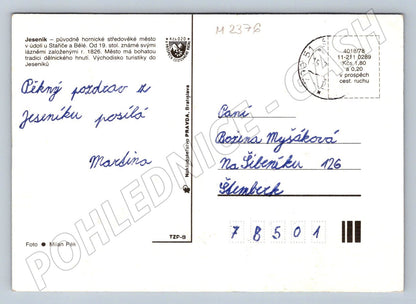 Jeseník – původně hornické středověké město
v údolí u Staříče a Bělé. Od 19. stol. známé svými
lázněmi založenými r. 1826. Město má bohatou
tradici dělnického hnutí. Východisko turistiky do
Jeseníků
M 2376
4018/78
11-211 0289
Kčs 1,60
a 0,20
v prospěch
cest. ruchu
Pěkný pozdrav z
Jeseníku posílá
Martina
Nakladatelství PRAVDA, Bratislava
Paní
Božena Myšáková
Na Šibeníku 126
Šternberk
78501
Foto ● Milan Pék
TZP-B
POHLEDNICE - CASH